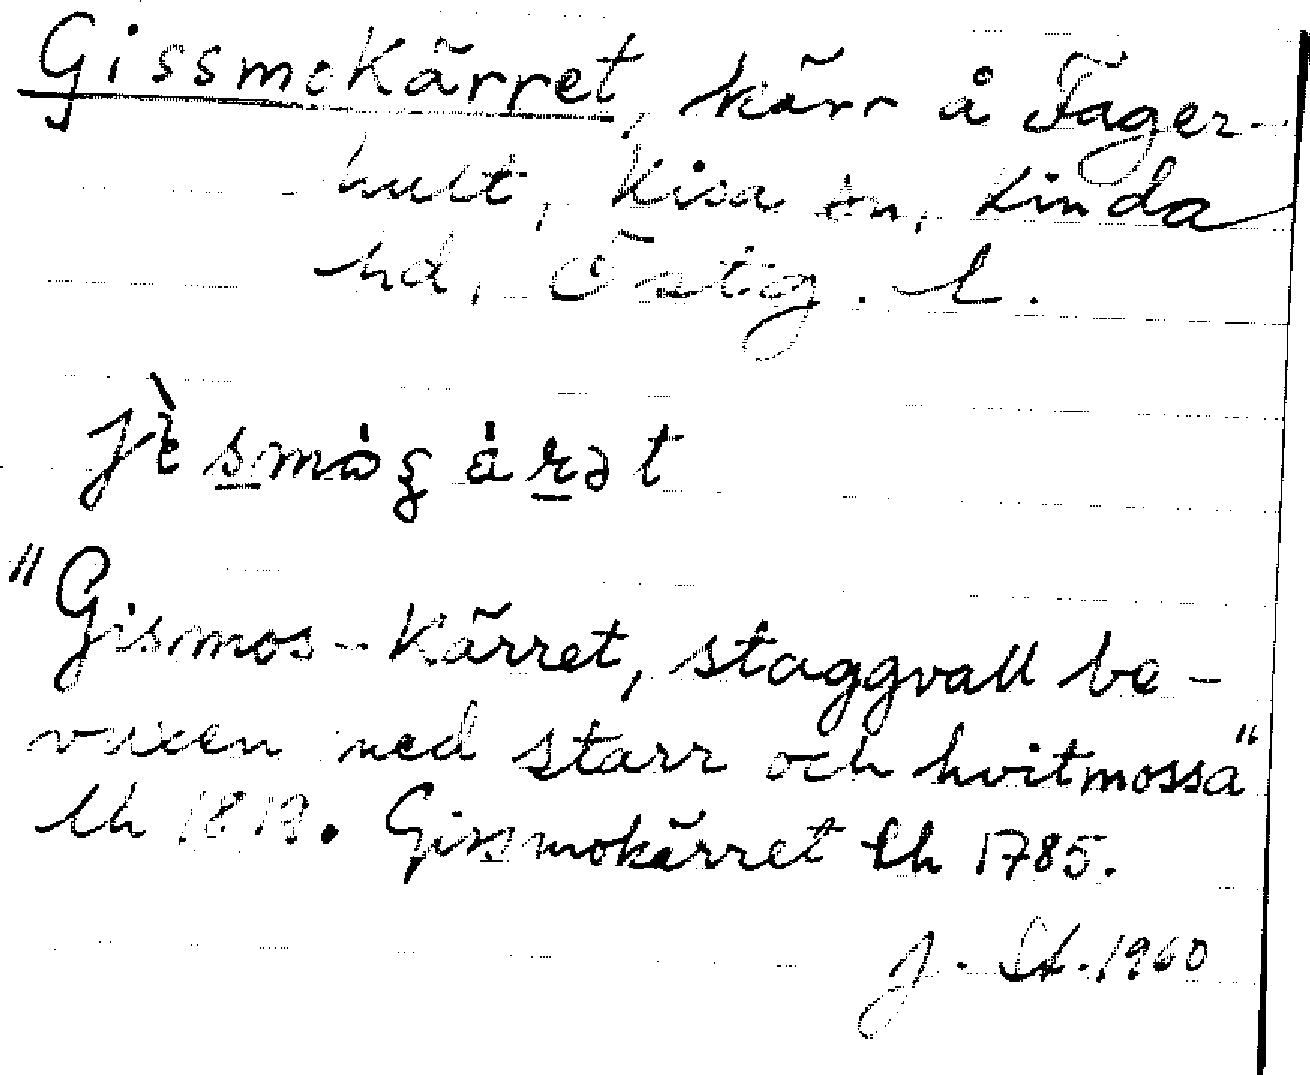 Gissmokärret, kärr å Fager-
hult, Kisa sn, Kinda
hd, Östg. l.
"Gismos-Kärret, staggvall be-
vuxen med starr och hvitmossa"
lh 1819. Gissmokärret lh 1785.
J. St. 1960